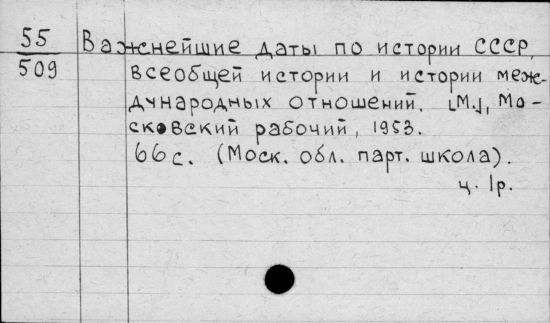 55 Важнейшие даты по истории СССР,
509 всеобщей истории и истории меж-
дународных отношений. [М.], Мо-
сковский рабочий, 1953.
66 с. (Моск. обл. парт. школа).
ц. 1р.